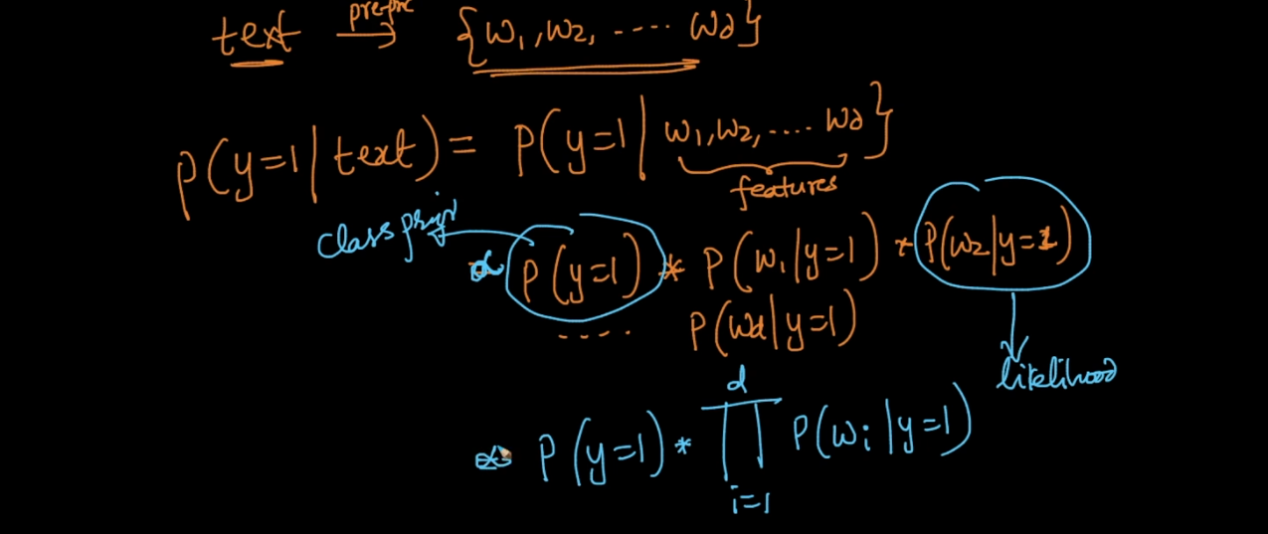 text pre-prc → {w₁, w₂, .... w_d}
P(y=1 | text) = P(y=1 | w₁, w₂, .... w_d}
features
class prior
∝ P(y=1) * P(w₁|y=1) * P(w₂|y=1)
.... P(w_d|y=1)
likelihood
∝ P(y=1) * ∏_{i=1}^{d} P(w_i|y=1)